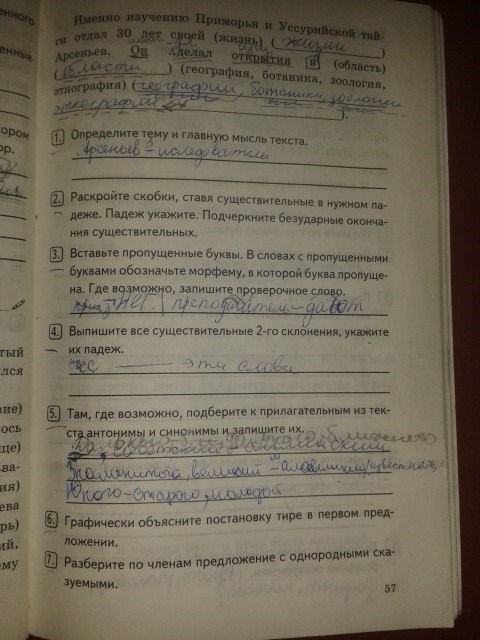 Именно изучению Приморья и Уссурийской тай-
ги отдал 30 лет своей (жизнь) ( жизни )
Арсеньев. Он сделал открытия в (область)
( области ) (география, ботаника, зоология,
этнография) ( географии, ботаники, зоологии
этнографии ).
1. Определите тему и главную мысль текста.
Арсеньев – иследователь
2. Раскройте скобки, ставя существительные в нужном па-
деже. Падеж укажите. Подчеркните безударные оконча-
ния существительных.
3. Вставьте пропущенные буквы. В словах с пропущенными
буквами обозначьте морфему, в которой буква пропуще-
на. Где возможно, запишите проверочное слово.
4. Выпишите все существительные 2-го склонения, укажите
их падеж.
эти слова
5. Там, где возможно, подберите к прилагательным из тек-
ста антонимы и синонимы и запишите их.
Знаменитый, великий
Юного-старого, молодой
6. Графически объясните постановку тире в первом пред-
ложении.
7. Разберите по членам предложение с однородными ска-
зуемыми.
57